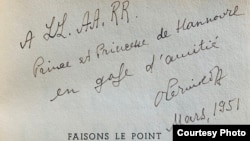 A LL. AA. RR.
Prince et Princesse de Hannovre
en gage d'amitié
Mars, 1951
FAISONS LE POINT
Courtesy Photo